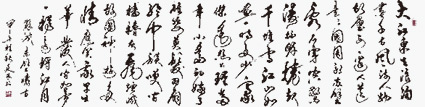 大江东去浪淘
尽千古风流人物
故垒西边人道
是三国周郎赤壁
乱石穿空惊
涛拍岸卷起
千堆雪江山如
画一时多少豪
杰遥想公瑾当
年小乔初嫁了
雄姿英发羽扇
纶巾谈笑间
樯橹灰飞烟灭
故国神游多
情应笑我早生
华发人生如梦
一樽还酹江月
苏轼赤壁怀古
甲午